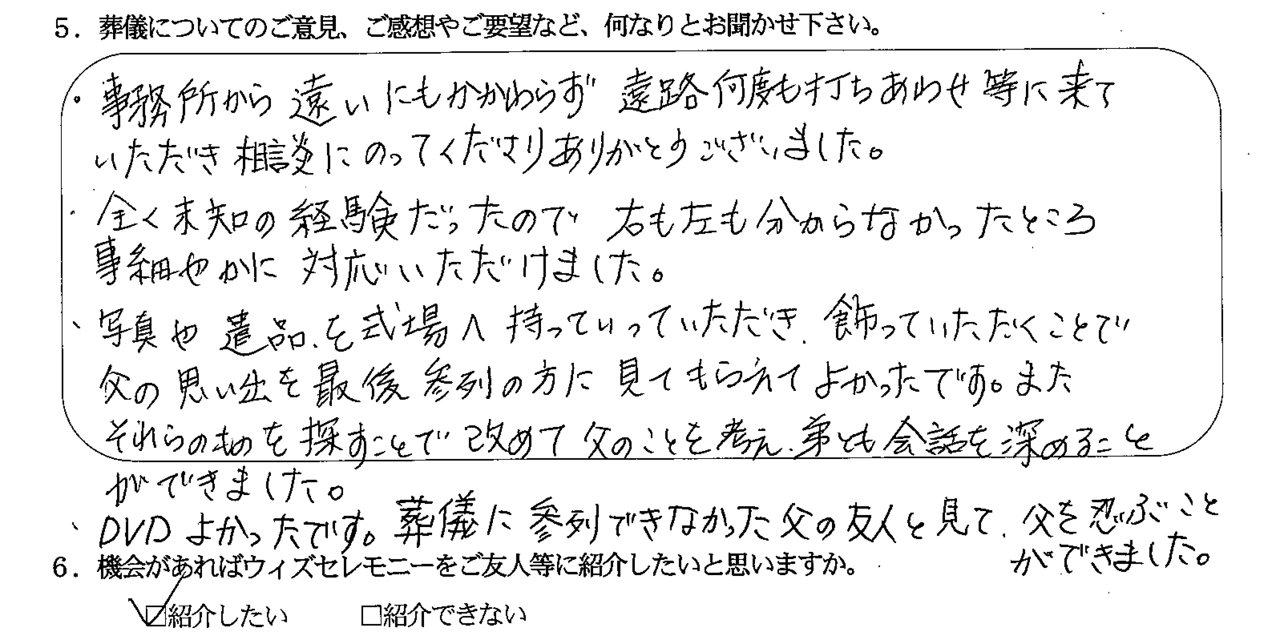 5．葬儀についてのご意見、ご感想やご要望など、何なりとお聞かせ下さい。
・事務所から遠いにもかかわらず 遠路何度も打ちあわせ等に来て
いただき相談にのってくださりありがとうございました。
・全く未知の経験だったので 右も左も分からなかったところ
事細やかに 対応いただけました。
、写真や遺品、を式場へ持っていっていただき、飾っていただくことで
父の思い出を最後参列の方に見てもらえてよかったです。また
それらのものを探すことで改めて父のことを考え、弟とも会話を深めること
ができました。
、DVDよかったです。葬儀に参列できなかった父の友人と見て、父を忍ぶこと
ができました。
6．機会があればウィズセレモニーをご友人等に紹介したいと思いますか。
☑紹介したい □紹介できない